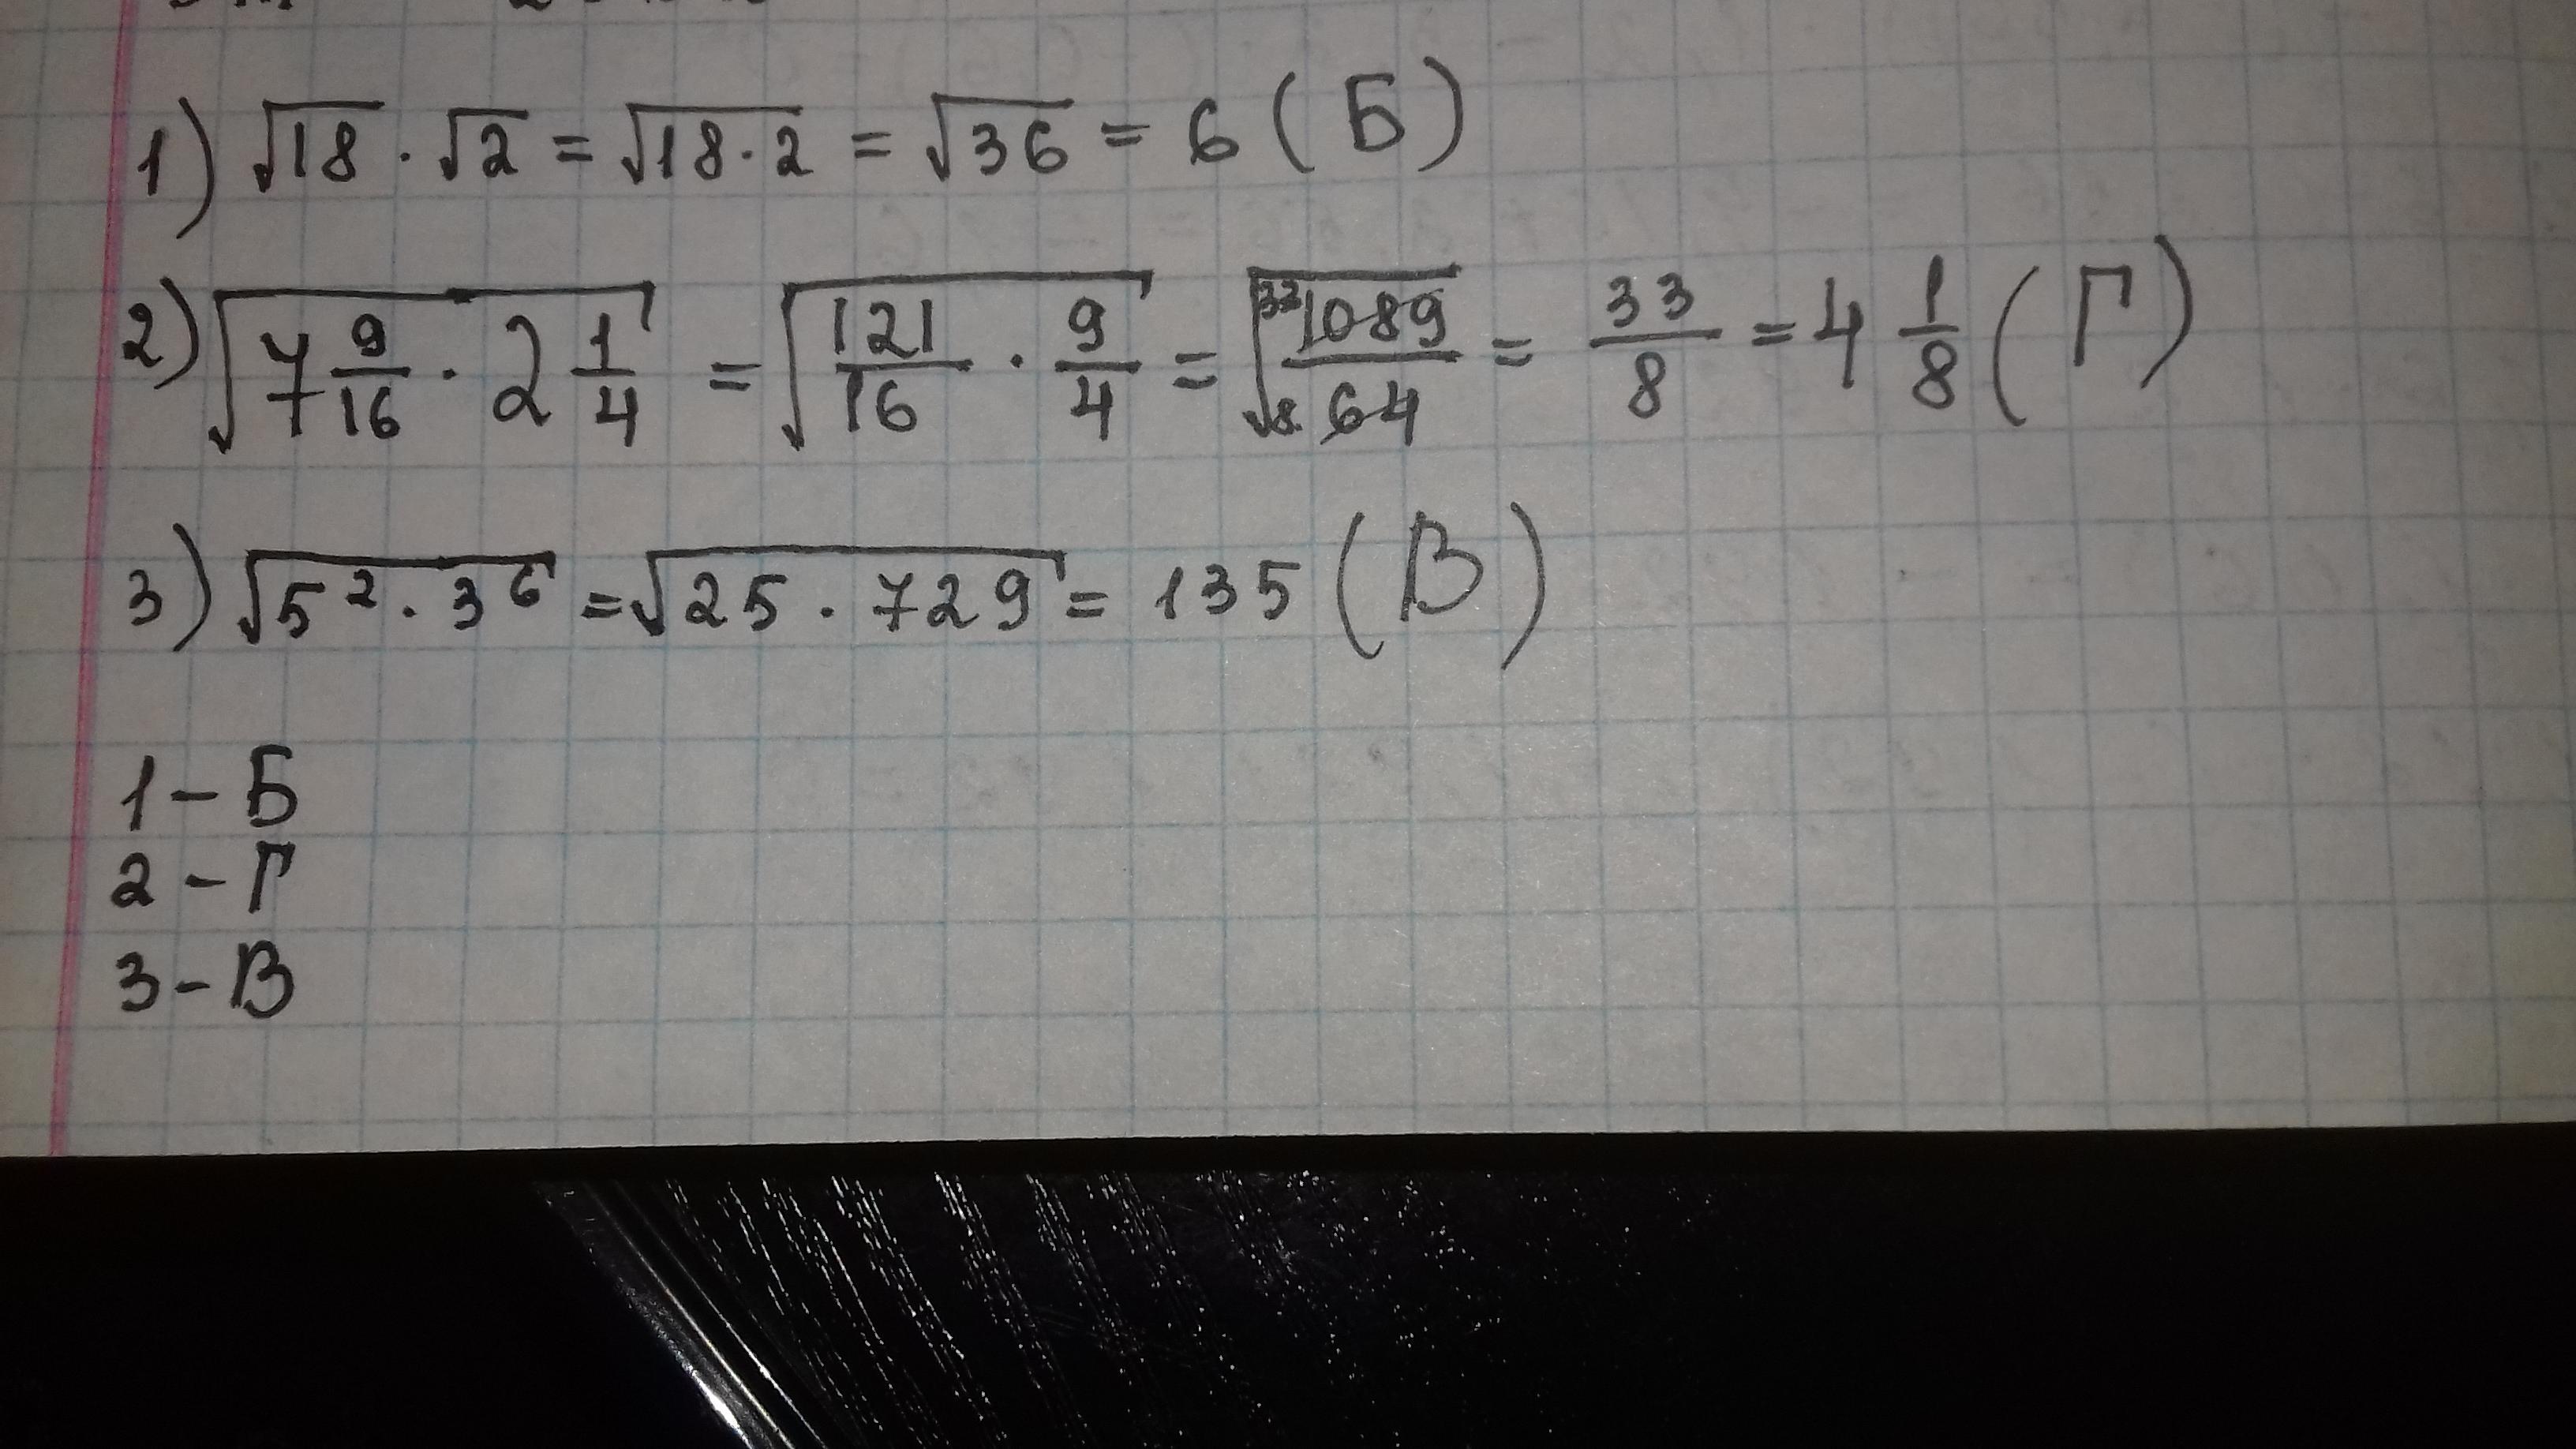 1) √18 · √2 = √18·2 = √36 = 6 (Б)
2) √7 9/16 · 2 1/4 = √121/16 · 9/4 = √33 1089/8 64 = 33/8 = 4 1/8 (Г)
3) √5² · 3⁶ = √25 · 729 = 135 (В)
1 – Б
2 – Г
3 – В